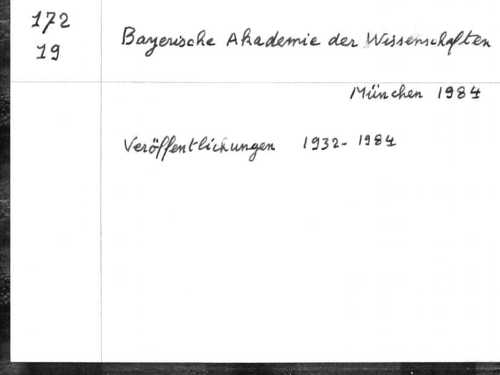 172
19
Bayerische Akademie der Wissenschaften
München 1984
Veröffentlichungen 1932-1984